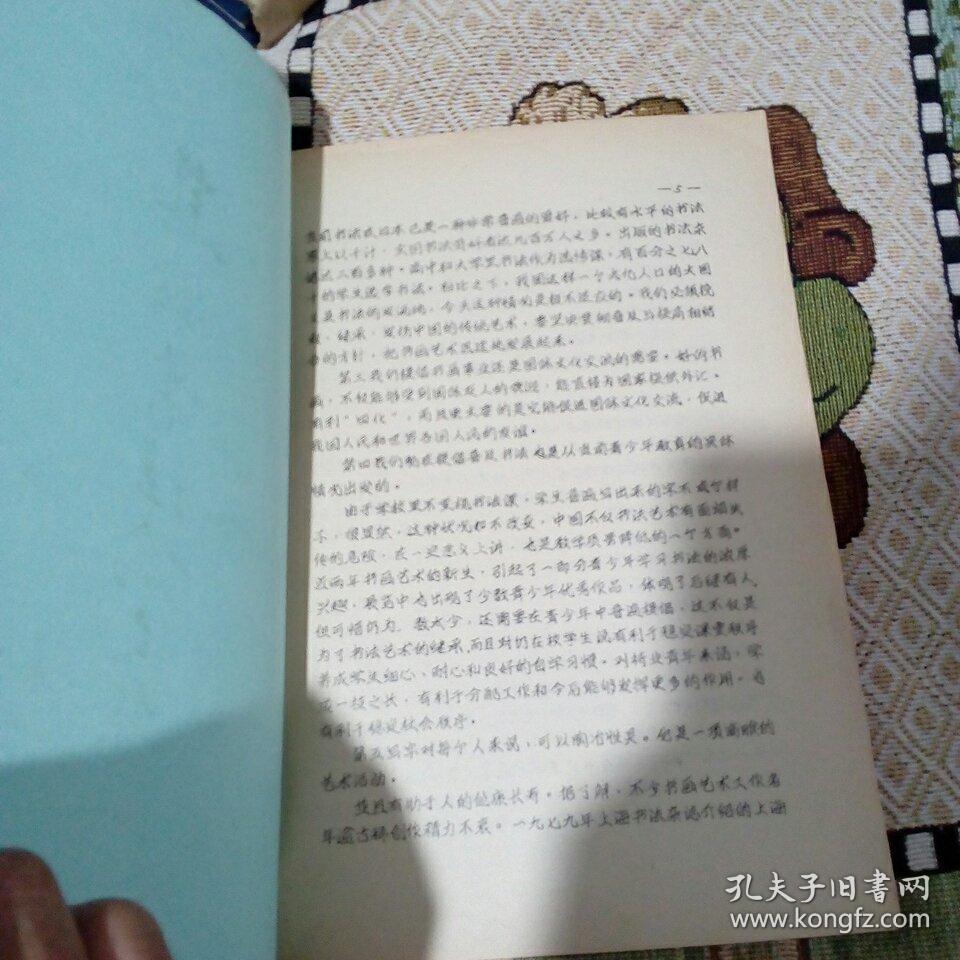 —5—
书法在日本已是一种非常普遍的爱好,比较有水平的书法
家上以千计,全国书法爱好者达几百万人之多。出版的书法杂
志达二百多种。高中和大学里书法作为选修课,有百分之七八
十的学生选学书法。相比之下,我国这样一个文化人口的大国
又是书法的发源地,今天这种情况是极不适应的。我们必须挽
救、继承、发扬中国的传统艺术,希望贯彻普及与提高相结
合的方针,把书画艺术迅速地发展起来。
第三我们提倡书画事业还是国际文化交流的需要。好的书
画,不仅能够受到国际友人的欢迎,能直接为国家提供外汇。
有利“四化”,而且更重要的是它能促进国际文化交流,促进
我国人民和世界各国人民的友谊。
第四我们现在提倡普及书法也是从当前青少年教育的实际
情况出发的。
由于学校里不重视书法课,学生普遍写出来的字不成个样
子,很显然,这种状况如不改变,中国不仅书法艺术有面临失
传的危险,在一定意义上讲,也是教学质量降低的一个方面。
近两年书画艺术的新生,引起了一部分青少年学习书法的浓厚
兴趣,最近中也出现了少数青少年优秀作品,体现了后继有人,
但可惜仍为数太少,还需要在青少年中普遍提倡,这不仅是
为了书法艺术的继承,而且对仍在校学生说有利于稳定课堂秩序
养成学文细心、耐心和良好的自学习惯。对待业青年来说,学
成一技之长,有利于分配工作和今后能够发挥更多的作用。也
有利于稳定社会秩序。
第五写字对每个人来说,可以陶冶性灵。它是一项高雅的
艺术活动。
并且有助于人的健康长寿。据了解,不少书画艺术工作者
年逾古稀创作精力不衰。一九七九年上海书法杂志介绍的上海
孔夫子旧书网
www.kongfz.com